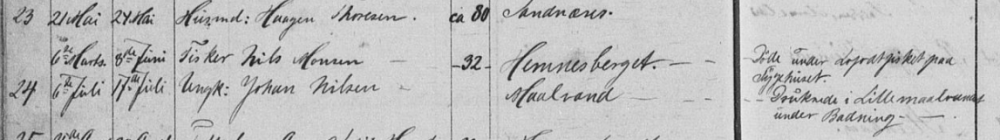 23 21 Mai 24 Mai Husmd: Haagen Thoresen. ca 80 Sandnæs.
6te Marts. 8de Juni Fisker Nils Monsen — -32- Hemnesberget. — — Døde under Lofotfisket paa
Sygehuset.
24 6te Juli 17de Juli Ungk: Johan Nilsen — Maalvand — — — Druknede i Lille maalvandet
under Badning —